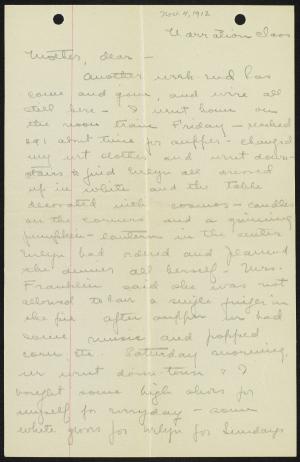 Nov. 4, 1912
Narration Class
Mother, dear —
Another week-end has
come and gone, and we're all
still here — I went home on
the noon train Friday — reached
891 about time for supper — changed
my wet clothes and went down-
stairs to find Evelyn all dressed
up in white and the table
decorated with cosmos — candles
on the corners and a grinning
pumpkin-lantern in the center
Evelyn had ordered and planned
the dinner all herself. Mrs.
Franklin said she was not
allowed to have a single finger in
the pie. After supper we had
some music and popped
corn, etc. Saturday morning,
we went down town & I
bought some high shoes for
myself for everyday — some
white gloves for Evelyn for Sundays